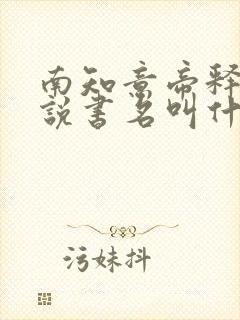 南知意帝释
说书名叫什
污妹抖